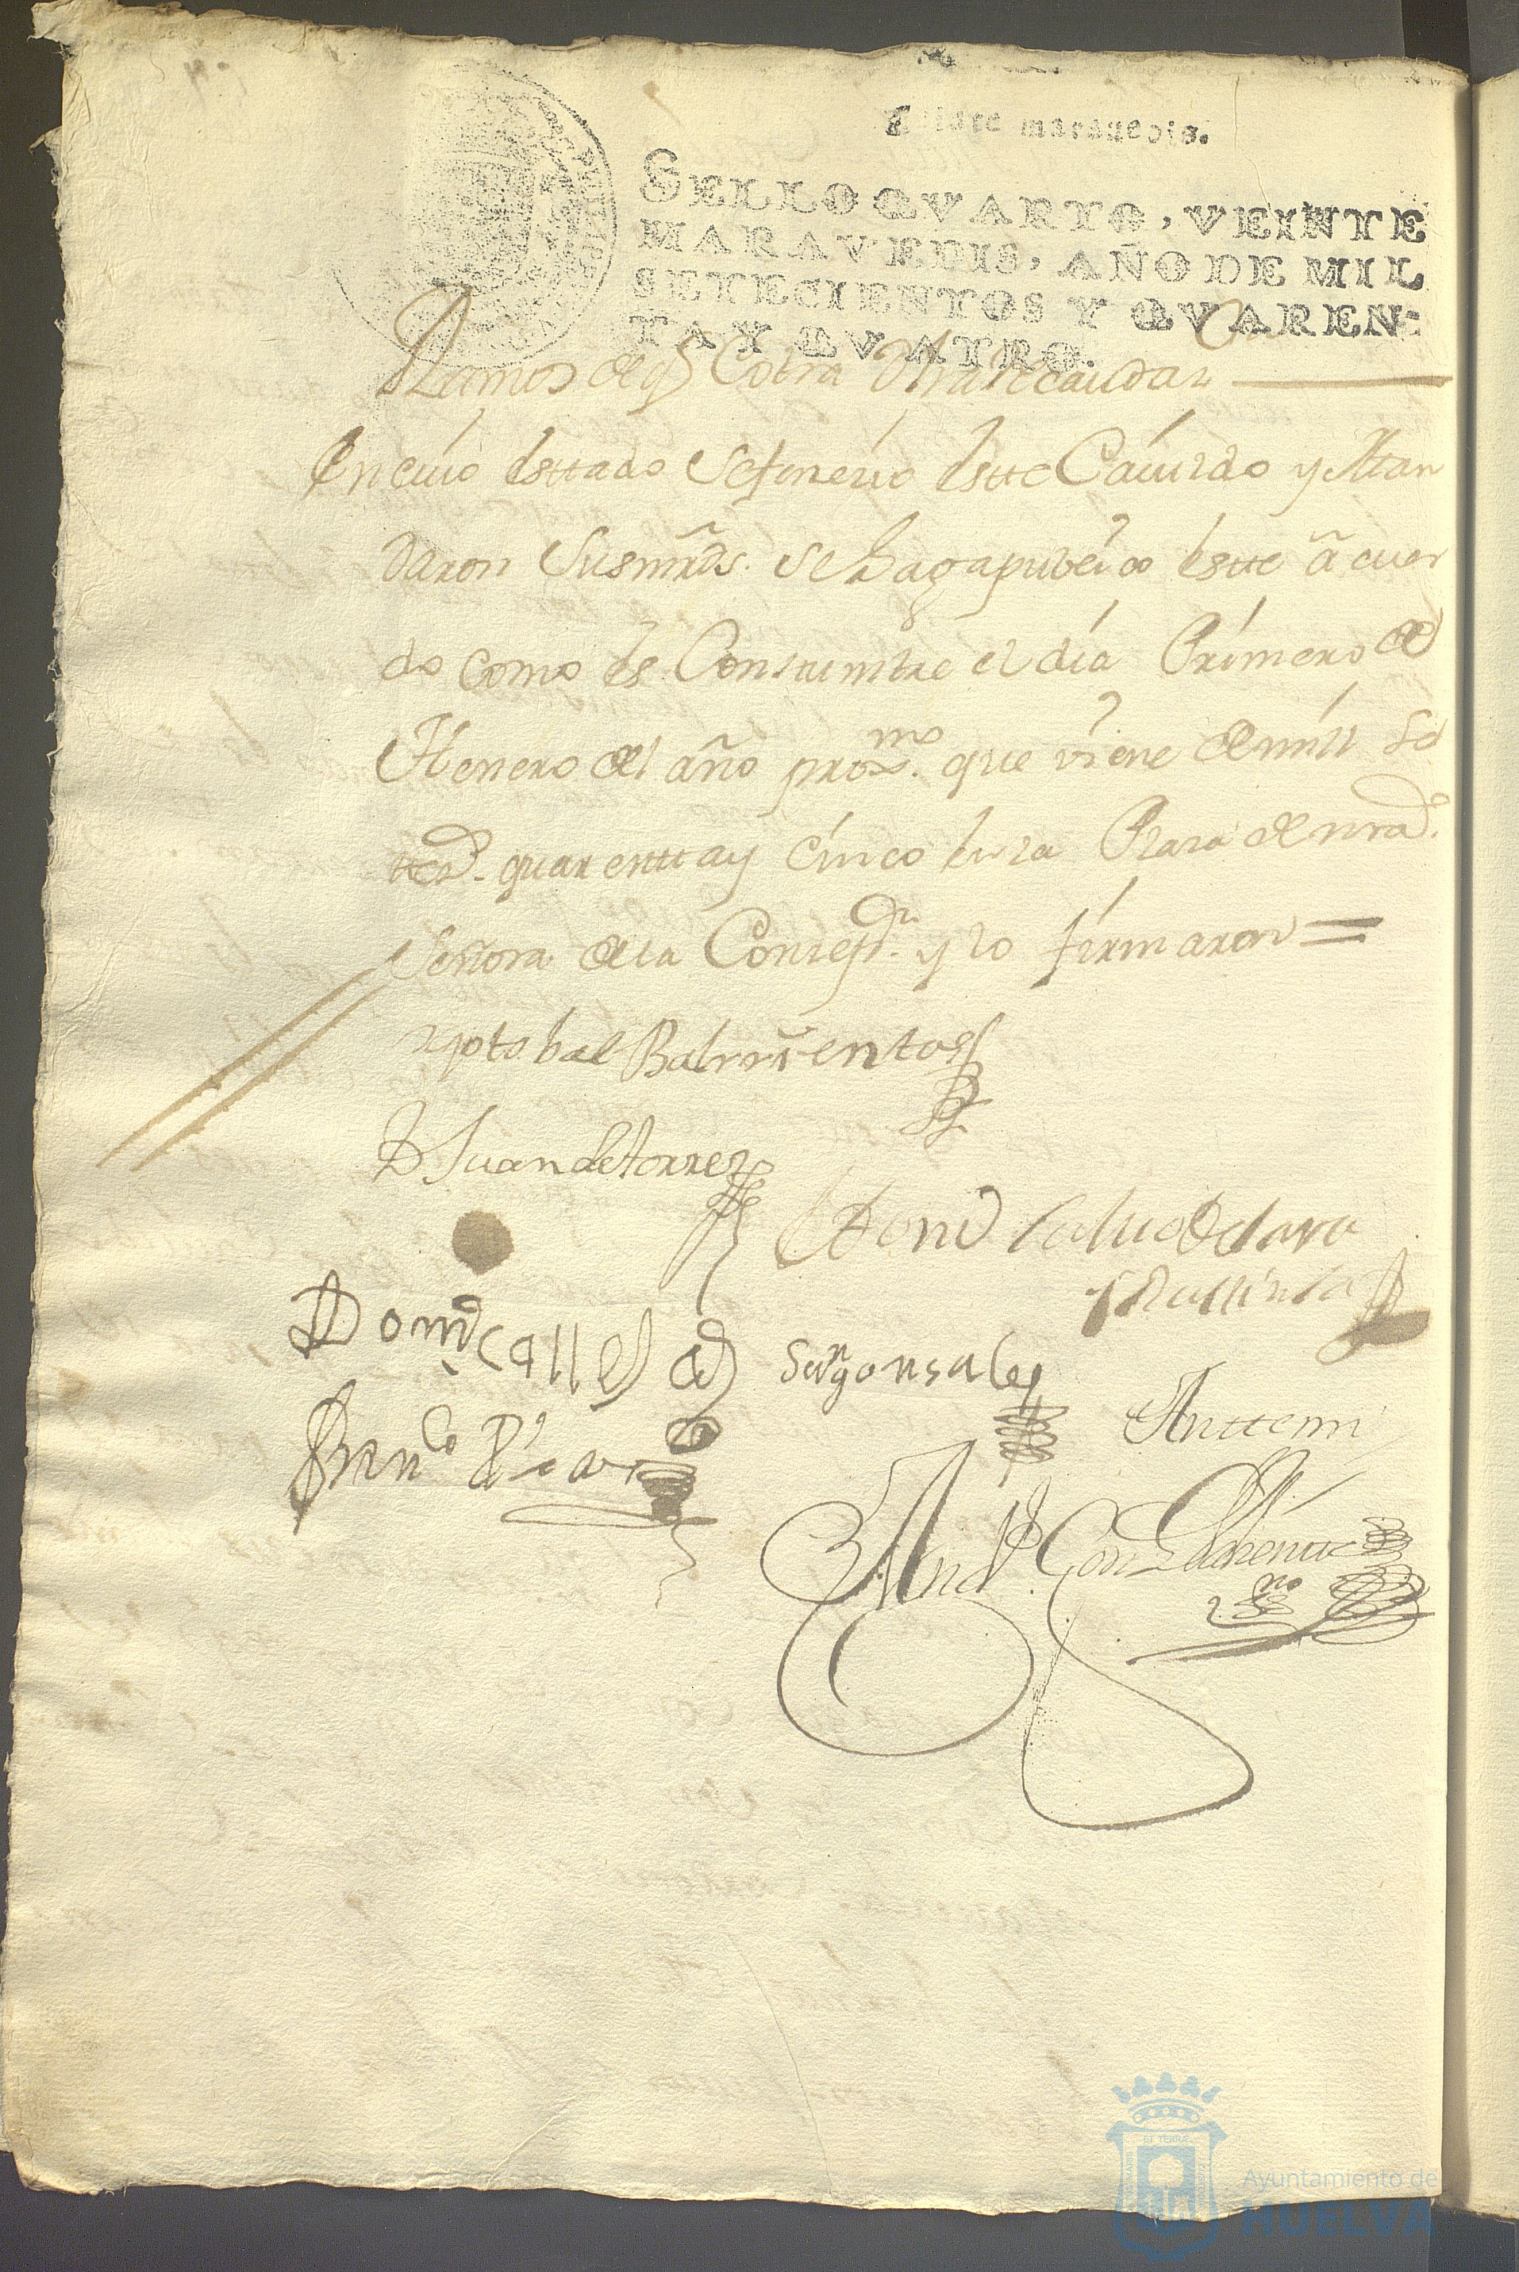 maravedis.
SELLO QVARTO, VEINTE
MARAVEDIS, AÑO DE MIL
SETECIENTOS Y QVAREN-
TA Y QVATRO.
Ramos de q Cobra
En cuio esttado sefenecio estte Cauildo y Man
daron Susmrds. se haga publico estte acuer
do como es Constumbre el dia Primero de
Henero del año proxmo. que viene de mill se
tteos. quarentta y cinco en la Plaza de nra.
Señora de la Consepon. y lo firmaron =
xptobal Balrrientos
D Juan de torres
Domo Calbo de Lara
y Mattienso
Domo Calles
Sevn gonsales
Franco Dias
Anttemi
Andrs. Con
esno
Ayuntamiento de
HUELVA